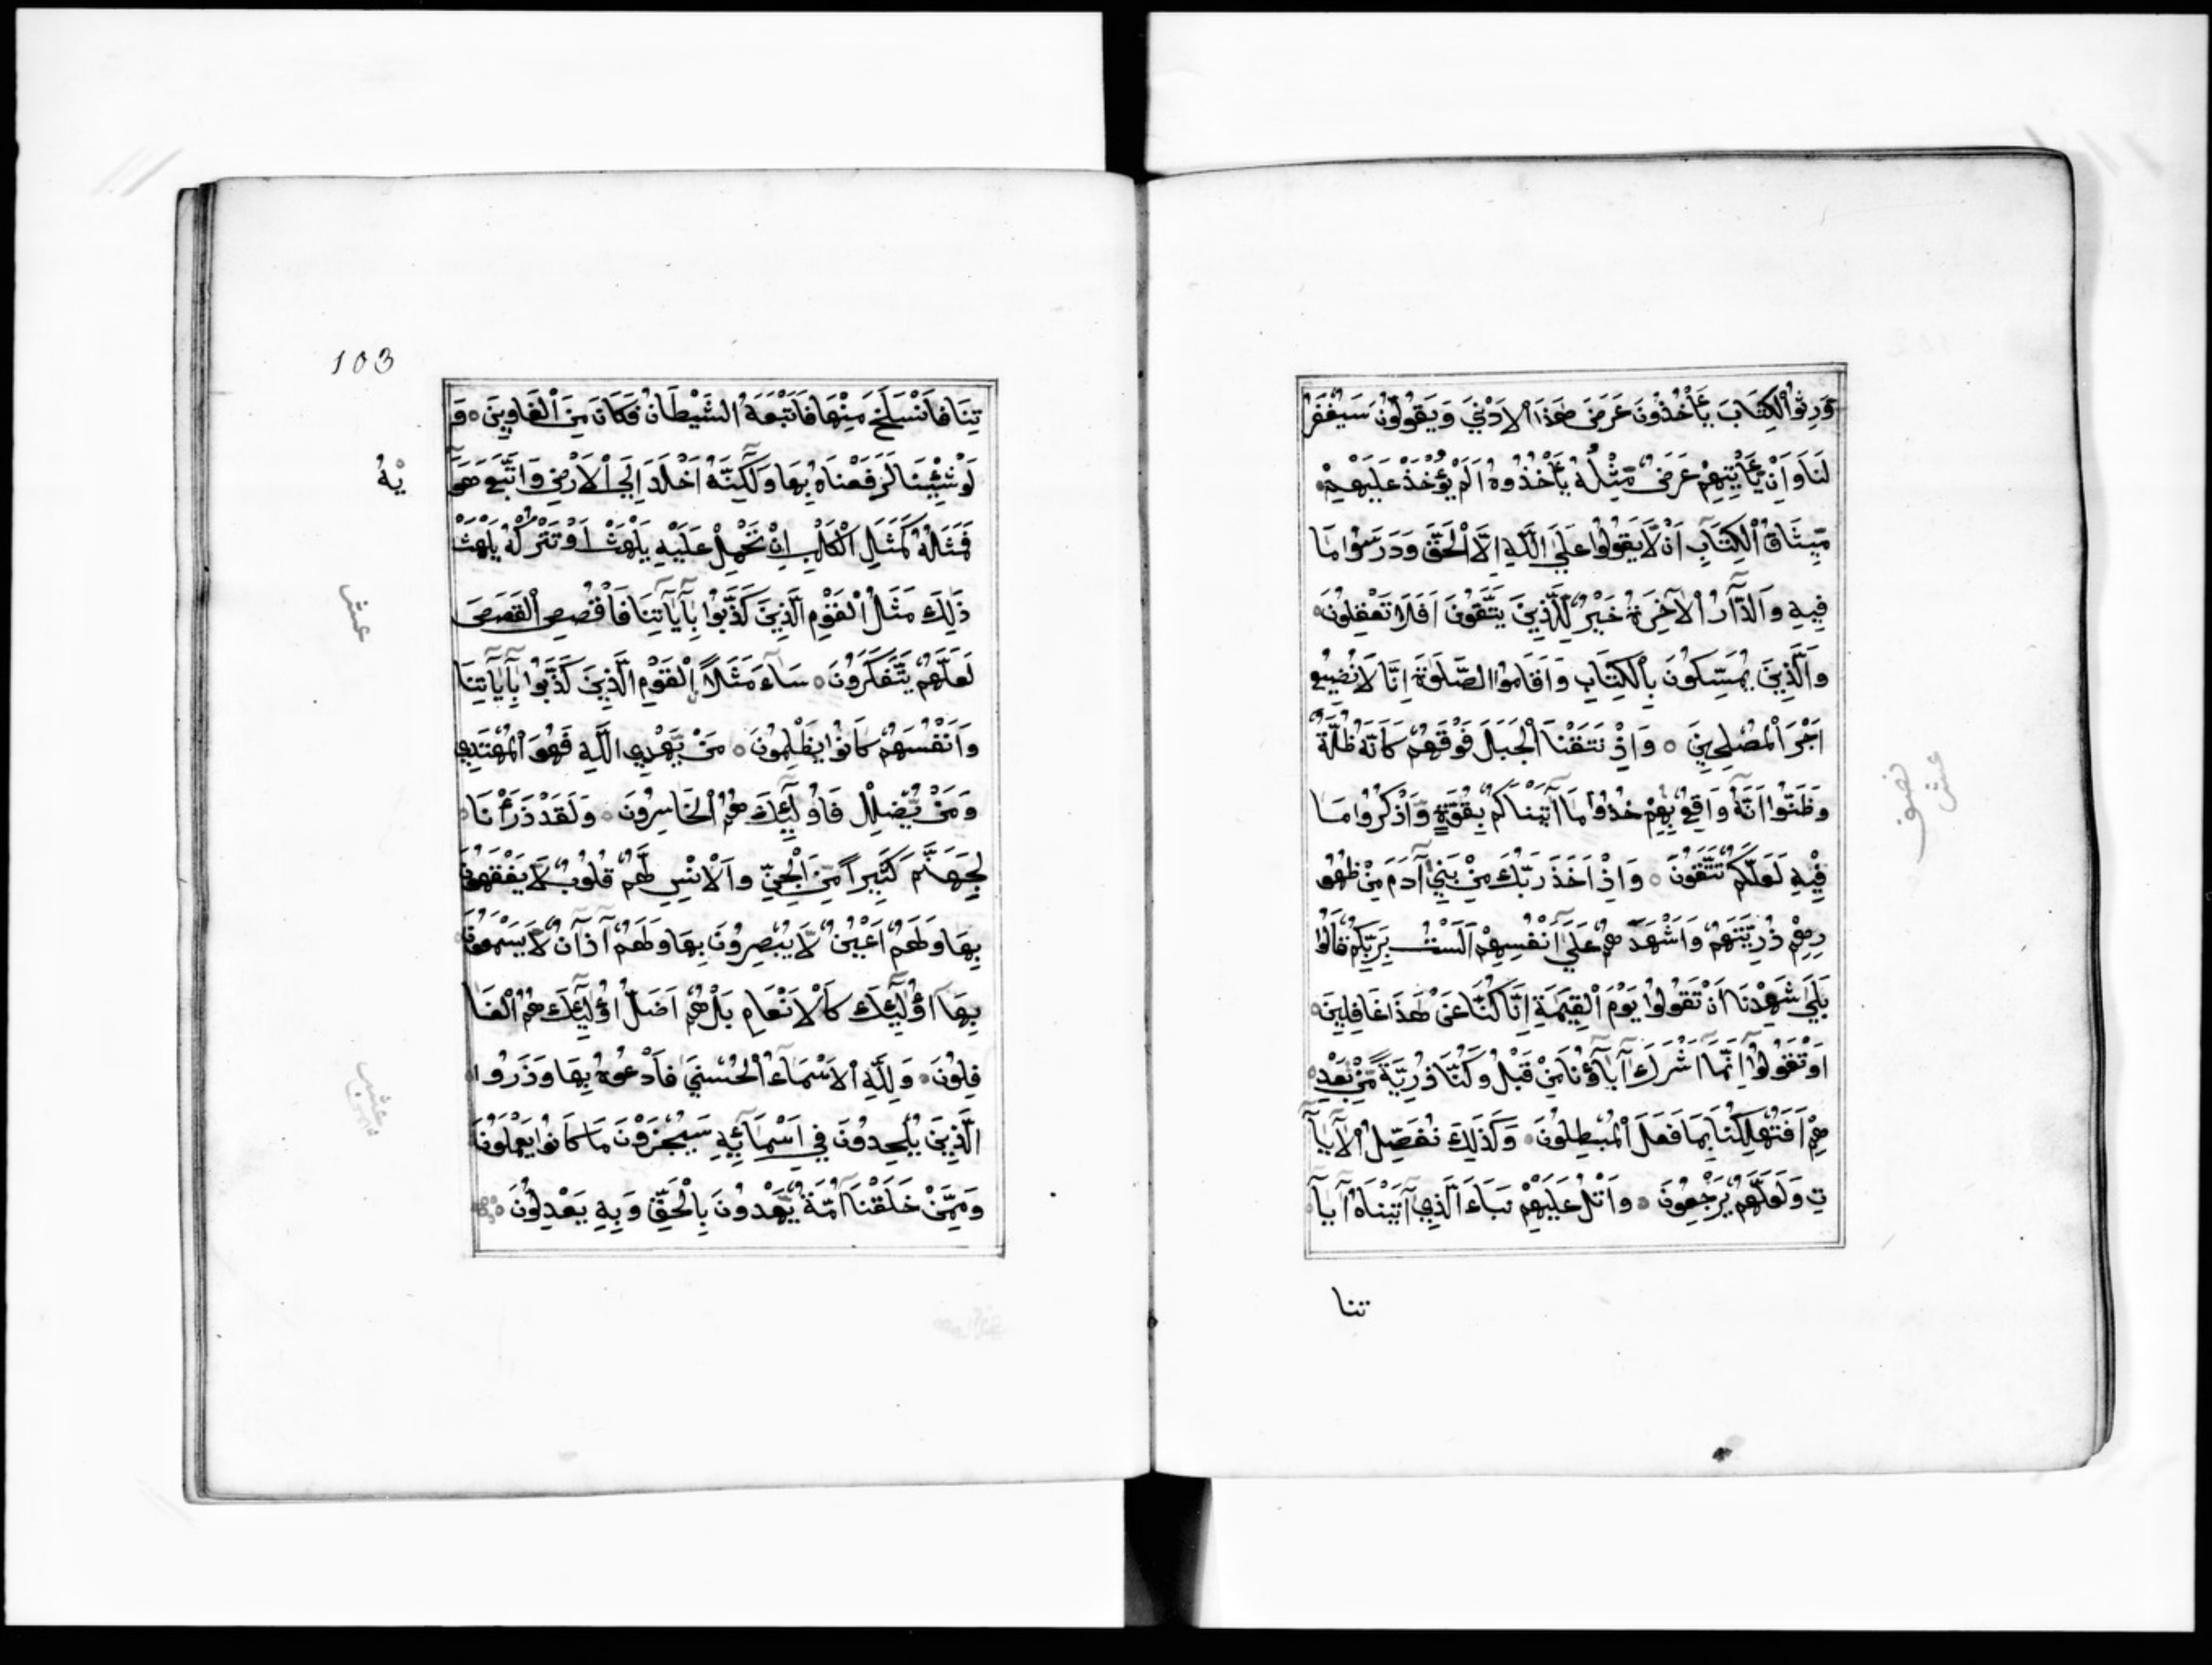 وَرِثُوا الْكِتَابَ يَأْخُذُونَ عَرَضَ هَذَا الْاَدْنَي وَيَقُولُونَ سَيُغْفَرُ
لَنَا وَاِنْ يَأْتِيهِمْ عَرَضٌ مِّثْلُهُ يَأْخُذُوهُ اَلَمْ يُؤْخَذْ عَلَيْهِمْ
مِّيثَاقُ الْكِتَابِ اَنْ لَّا يَقُولُوا عَلَي اللّٰهِ اِلَّا الْحَقَّ وَدَرَسُوا مَا
فِيهِ وَالدَّارُ الْاٰخِرَةُ خَيْرٌ لِّلَّذِينَ يَتَّقُونَ اَفَلَا تَعْقِلُونَ
وَالَّذِينَ يُمَسِّكُونَ بِالْكِتَابِ وَاَقَامُوا الصَّلٰوةَ اِنَّا لَا نُضِيعُ
اَجْرَ الْمُصْلِحِينَ ○ وَاِذْ نَتَقْنَا الْجَبَلَ فَوْقَهُمْ كَاَنَّهُ ظُلَّةٌ
وَظَنُّوا اَنَّهُ وَاقِعٌ بِهِمْ خُذُوا مَا آتَيْنَاكُمْ بِقُوَّةٍ وَّاذْكُرُوا مَا
فِيْهِ لَعَلَّكُمْ تَتَّقُونَ ○ وَاِذْ اَخَذَ رَبُّكَ مِنْ بَنِي آدَمَ مِنْ ظُهُو
رِهِمْ ذُرِّيَّتَهُمْ وَاَشْهَدَهُمْ عَلَي اَنْفُسِهِمْ اَلَسْتُ بِرَبِّكُمْ قَالُوا
بَلَي شَهِدْنَا اَنْ تَقُولُوا يَوْمَ الْقِيٰمَةِ اِنَّا كُنَّا عَنْ هٰذَا غَافِلِينَ ○
اَوْ تَقُولُوا اِنَّمَا اَشْرَكَ آبَاؤُنَا مِنْ قَبْلُ وَكُنَّا ذُرِّيَّةً مِّنْ بَعْدِ
هِمْ اَفَتُهْلِكُنَا بِمَا فَعَلَ الْمُبْطِلُونَ ○ وَكَذٰلِكَ نُفَصِّلُ الْآيَا
تِ وَلَعَلَّهُمْ يَرْجِعُونَ ○ وَاتْلُ عَلَيْهِمْ نَبَاَ الَّذِي آتَيْنَاهُ آيَا
تنا
نصف
عشر
103
تِنَا فَانْسَلَخَ مِنْهَا فَاَتْبَعَهُ الشَّيْطَانُ فَكَانَ مِنَ الْغَاوِينَ ○ وَ
لَوْ شِئْنَا لَرَفَعْنَاهُ بِهَا وَلٰكِنَّهُ اَخْلَدَ اِلَي الْاَرْضِ وَاتَّبَعَ هَوَ
يٰهُ
فَمَثَلُهُ كَمَثَلِ الْكَلْبِ اِنْ تَحْمِلْ عَلَيْهِ يَلْهَثْ اَوْ تَتْرُكْهُ يَلْهَثْ
ذٰلِكَ مَثَلُ الْقَوْمِ الَّذِينَ كَذَّبُوا بِآيَاتِنَا فَاقْصُصِ الْقَصَصَ
لَعَلَّهُمْ يَتَفَكَّرُونَ ○ سَاءَ مَثَلًا اِلْقَوْمِ الَّذِينَ كَذَّبُوا بِآيَاتِنَا
وَاَنْفُسَهُمْ كَانُوا يَظْلِمُونَ ○ مَنْ يَّهْدِي اللّٰهِ فَهُوَ الْمُهْتَدِي
وَمَنْ يُّضْلِلْ فَاُولٰئِكَ هُمُ الْخَاسِرُونَ ○ وَلَقَدْ ذَرَأْنَا
لِجَهَنَّمَ كَثِيراً مِّنَ الْجِنِّ وَالْاِنْسِ لَهُمْ قُلُوبٌ لَّا يَفْقَهُونَ
بِهَا وَلَهُمْ اَعْيُنٌ لَّا يُبْصِرُونَ بِهَا وَلَهُمْ آذَانٌ لَّا يَسْمَعُونَ
بِهَا اُولٰئِكَ كَالْاَنْعَامِ بَلْ هُمْ اَضَلُّ اُولٰئِكَ هُمُ الْغَا
فِلُونَ ○ وَلِلّٰهِ الْاَسْمَاءُ الْحُسْنَي فَادْعُوهُ بِهَا وَذَرُوا
الَّذِينَ يُلْحِدُونَ فِي اَسْمَائِهِ سَيُجْزَوْنَ مَا كَانُوا يَعْمَلُونَ
وَمِمَّنْ خَلَقْنَا اُمَّةٌ يَّهْدُونَ بِالْحَقِّ وَبِهِ يَعْدِلُونَ ○
عشر
عشر